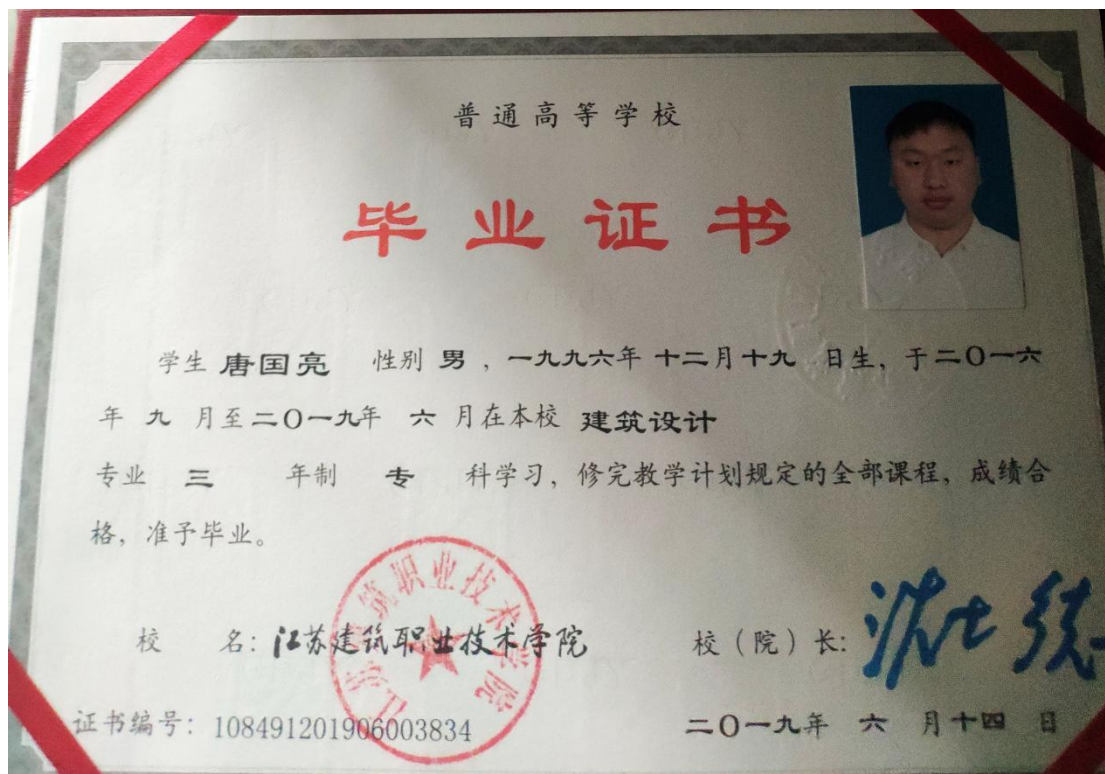 普通高等学校
毕业证书
学生 唐国亮 性别 男 ，一九九六年 十二月十九 日生，于二〇一六
年 九 月至二〇一九年 六 月在本校 建筑设计
专业 三 年制 专 科学习，修完教学计划规定的全部课程，成绩合
格，准予毕业。
江苏建筑职业技术学院
校 名：江苏建筑职业技术学院
校（院）长：沈士德
证书编号：108491201906003834
二〇一九年 六 月十四 日